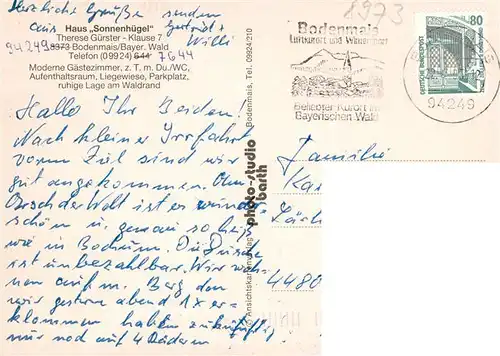 Herzliche Grüße senden
aus Gertrud + Willi
8973
Haus „Sonnenhügel"
Therese Gürster - Klause 7
94249 8373 Bodenmais/Bayer. Wald
Telefon (09924) 644 7644
Moderne Gästezimmer, z. T. m. Du./WC,
Aufenthaltsraum, Liegewiese, Parkplatz,
ruhige Lage am Waldrand
Hallo Ihr Beiden!
Nach kleiner Irrfahrt
vorm Ziel sind wir
gut angekommen. Am
Arsch der Welt ist es wunder-
schön u. genau so heiß
wie in Bochum. Die Dusche
ist unbezahlbar. Wir woh-
nen auf m. Berg den
wir gestern abend 1x er-
klommen haben zukünftig
nur noch auf 4 Rädern
photo-studio
barth
Bodenmais, Tel. 09924/210
Ansichtskartenverlag
Bodenmais
Luftkurort und Wintersport
Beliebter Kurort im
Bayerischen Wald
94249
80
DEUTSCHE BUNDESPOST
Familie
4480